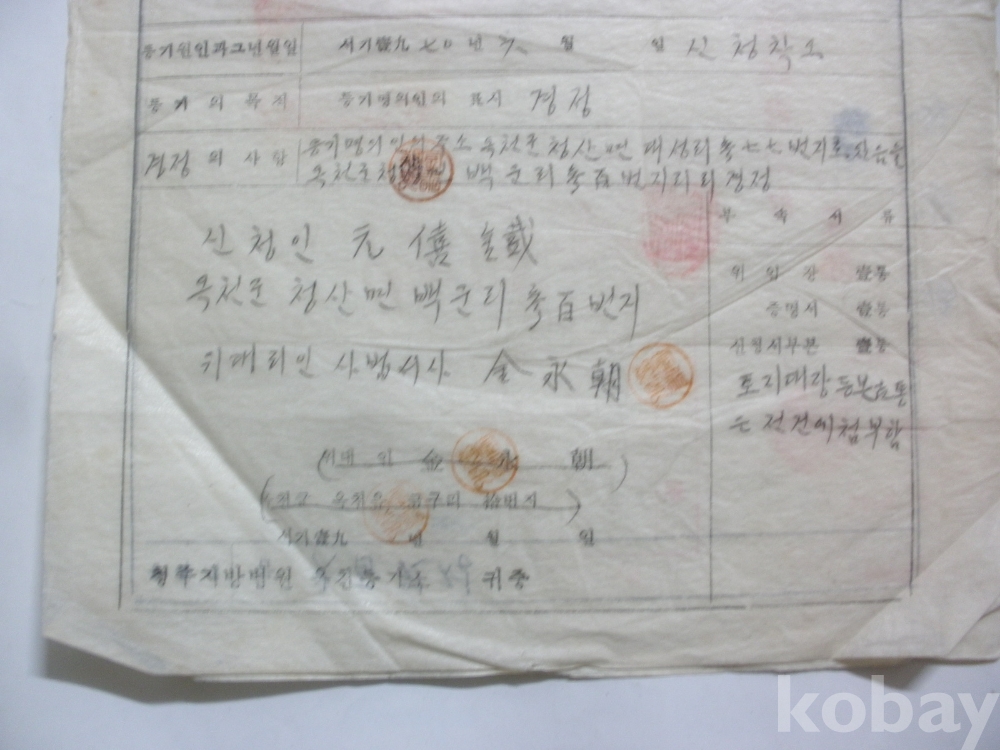 등기원인과그년월일 서기壹九七0년 月 일 신청착오
등기의 목적 등기명의인의 표시 경정
경정의 사항 등기명의인의 주소 옥천군 청산면 대성리 七七번지로 된음을
옥천군 청산면 백운리 參百번지리 경정
부속서류
신청인 元僖載
위임장 壹통
옥천군 청산면 백운리 參百번지
증명서 壹통
신청서부본 壹통
위대리인 사법서사 金永朝
토지대장등본 통
은 전건에첨부함
서대인 金永朝
옥천군 옥천읍 번지
서기壹九 년 월 일
청주지방법원 옥천등기소 귀중
kobay